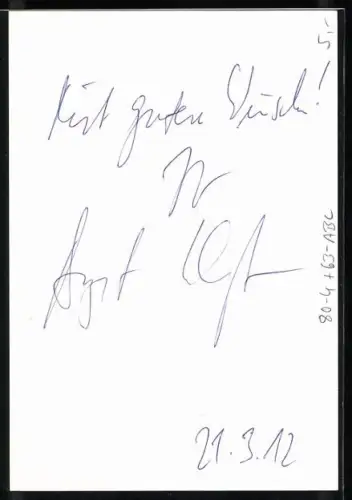 Mit guten Wünschen!
Ihr
August
21.3.12
5,-
80-4+63-ABC